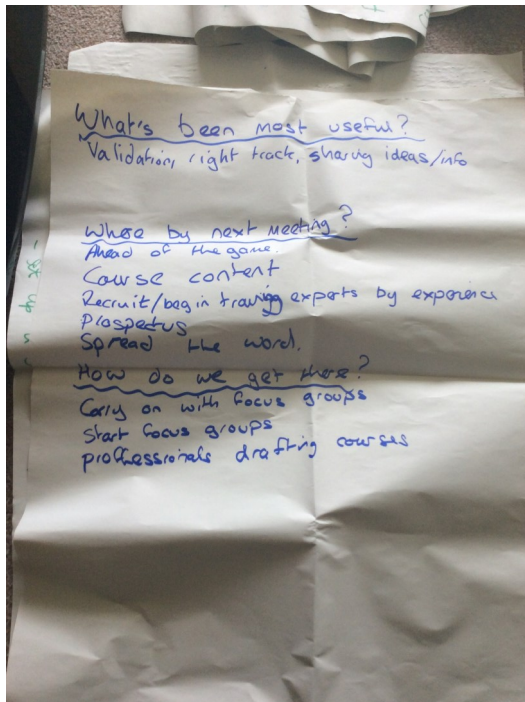 What's been most useful?
Validation, right track, sharing ideas/info
Where by next meeting?
Ahead of the game.
Course content
Recruit/begin training experts by experience
Prospectus
Spread the word.
How do we get there?
Carry on with focus groups
Start focus groups
proffessionals drafting courses